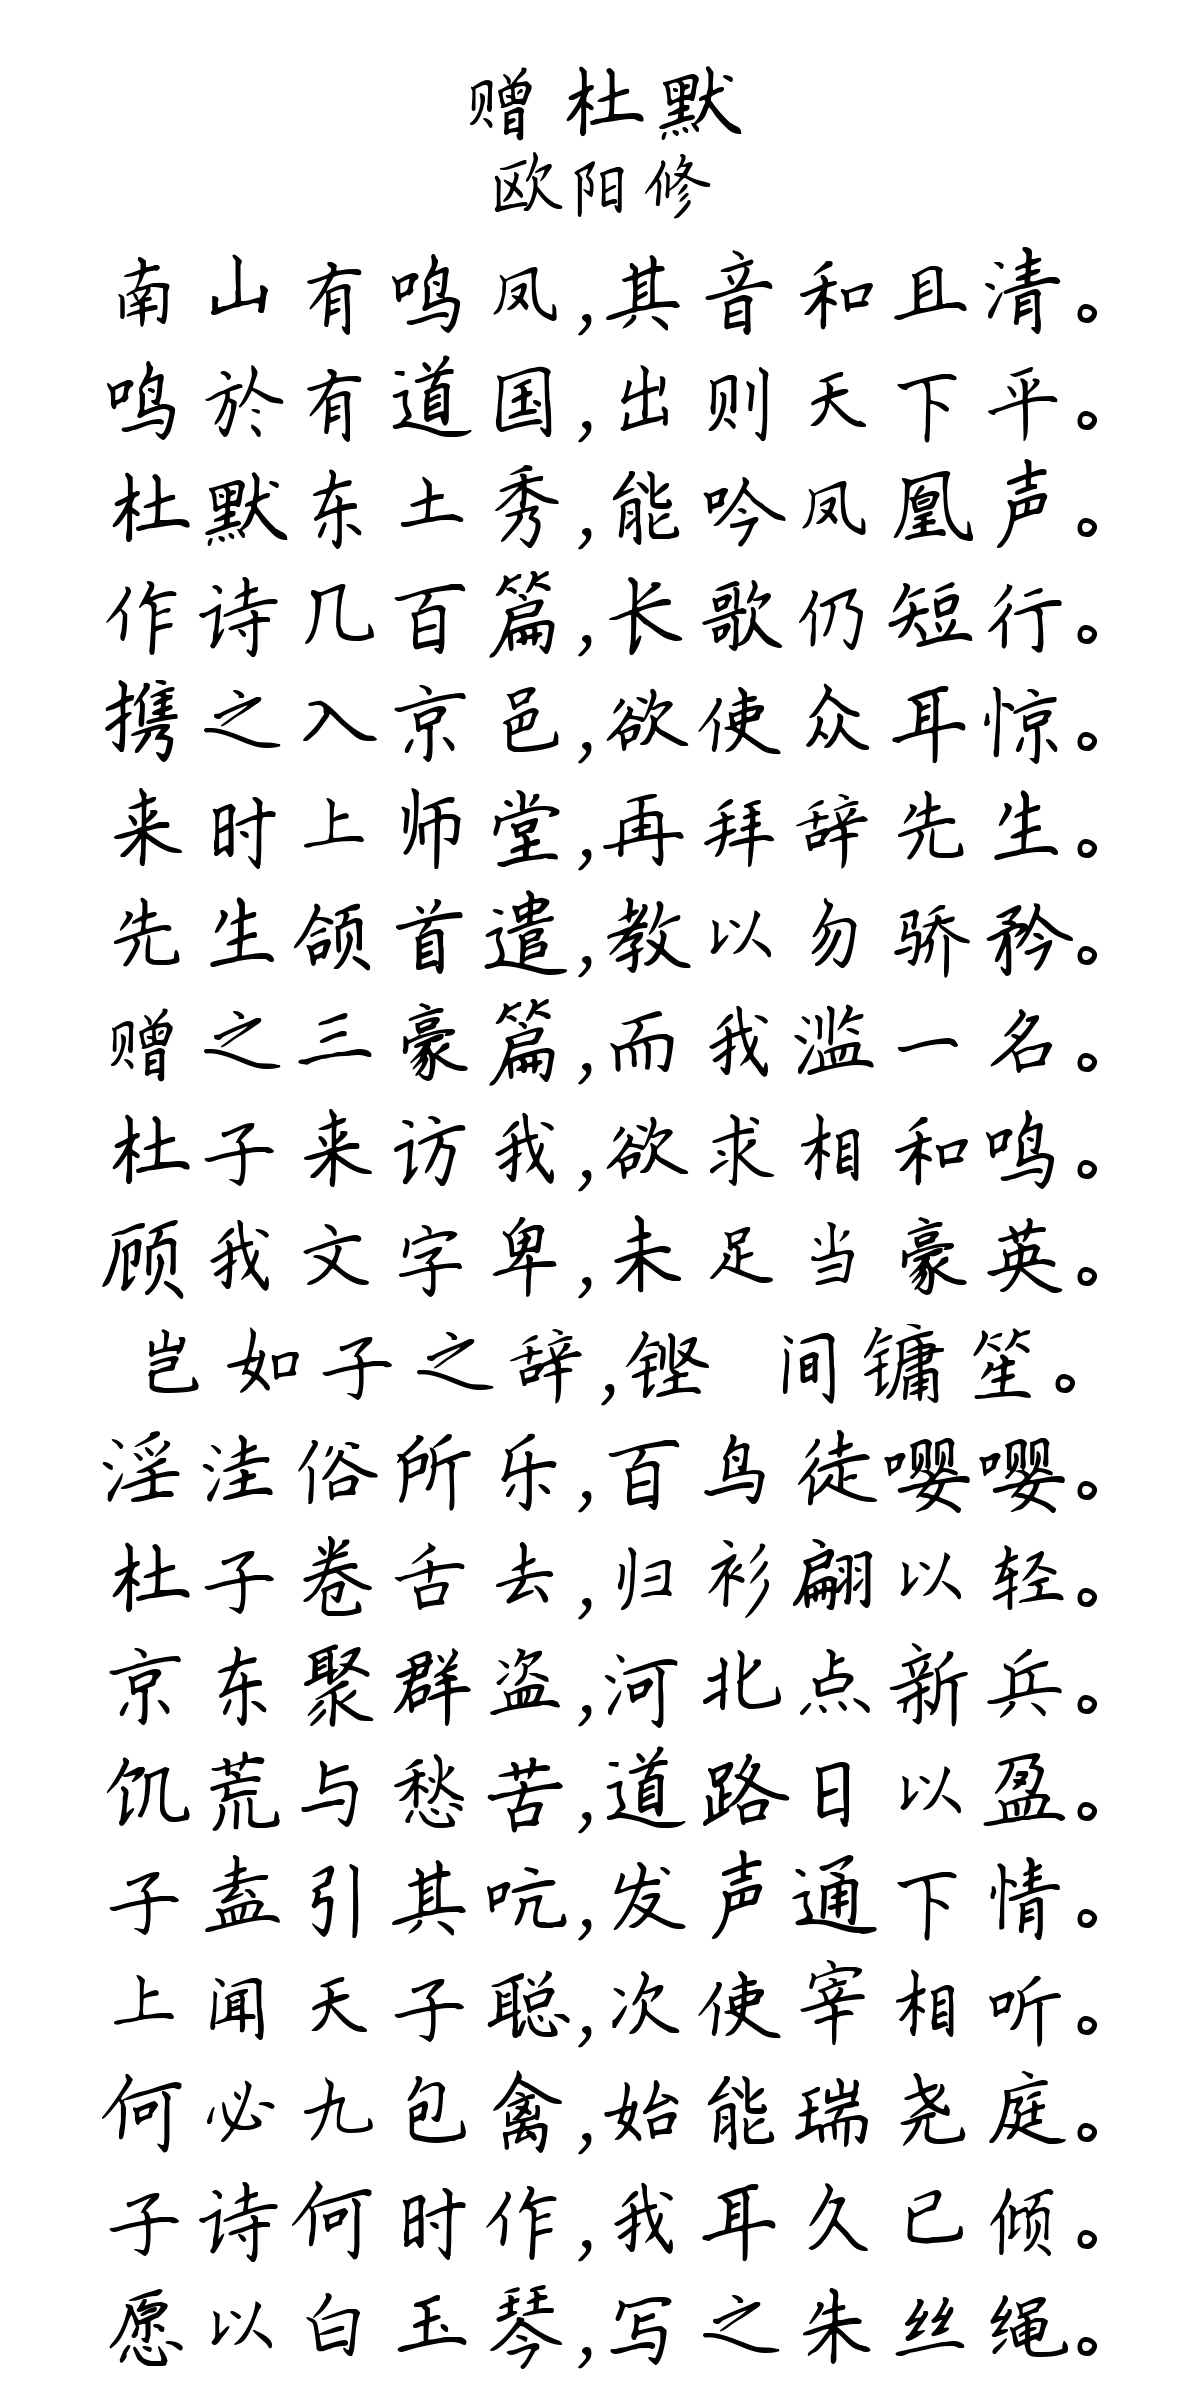 赠杜默
欧阳修
南山有鸣凤,其音和且清。
鸣於有道国,出则天下平。
杜默东土秀,能吟凤凰声。
作诗几百篇,长歌仍短行。
携之入京邑,欲使众耳惊。
来时上师堂,再拜辞先生。
先生颌首遣,教以勿骄矜。
赠之三豪篇,而我滥一名。
杜子来访我,欲求相和鸣。
顾我文字卑,未足当豪英。
岂如子之辞,铿 间镛笙。
淫洼俗所乐,百鸟徒嘤嘤。
杜子卷舌去,归衫翩以轻。
京东聚群盗,河北点新兵。
饥荒与愁苦,道路日以盈。
子盍引其吭,发声通下情。
上闻天子聪,次使宰相听。
何必九包禽,始能瑞尧庭。
子诗何时作,我耳久已倾。
愿以白玉琴,写之朱丝绳。